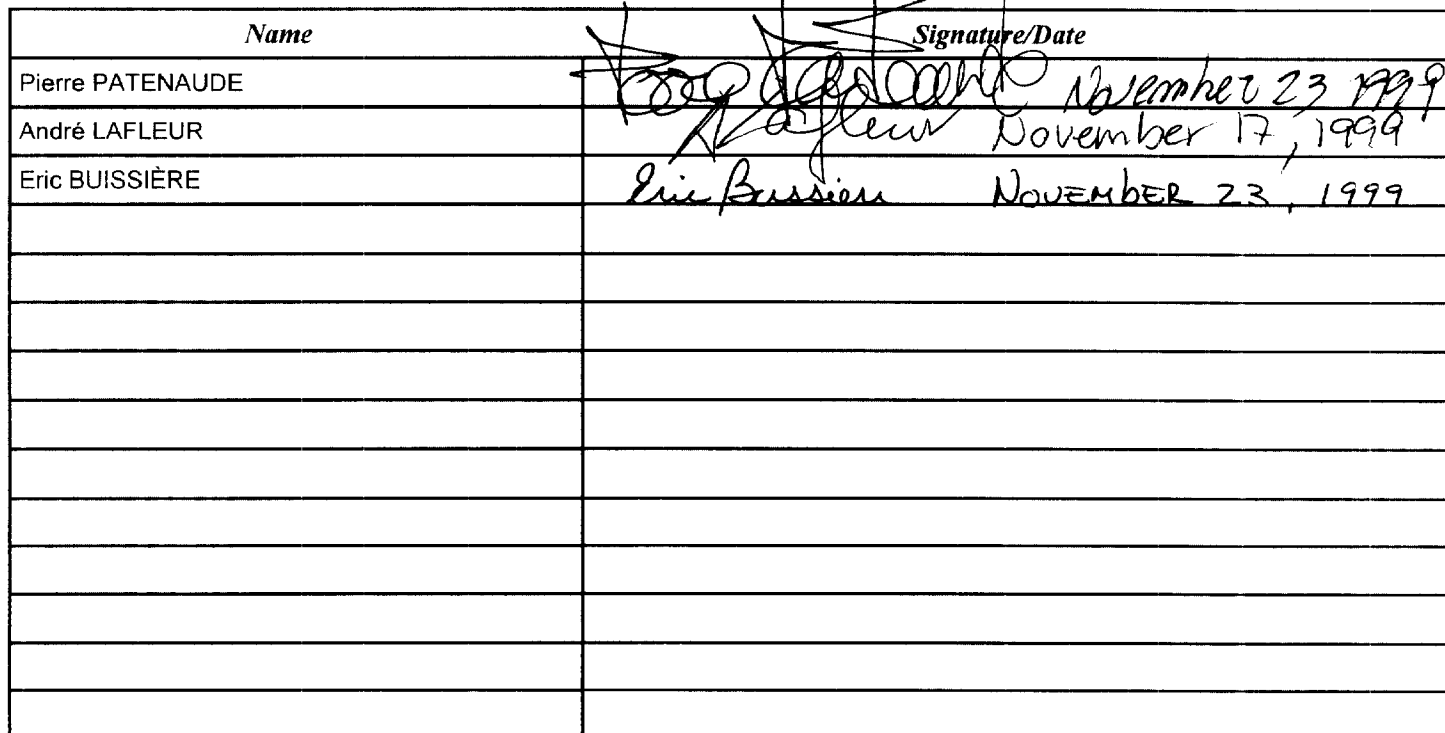 Name Signature/Date
Pierre PATENAUDE November 23 1999
André LAFLEUR Lafleur November 17, 1999
Eric BUISSIÈRE Eric Buissière NOVEMBER 23, 1999